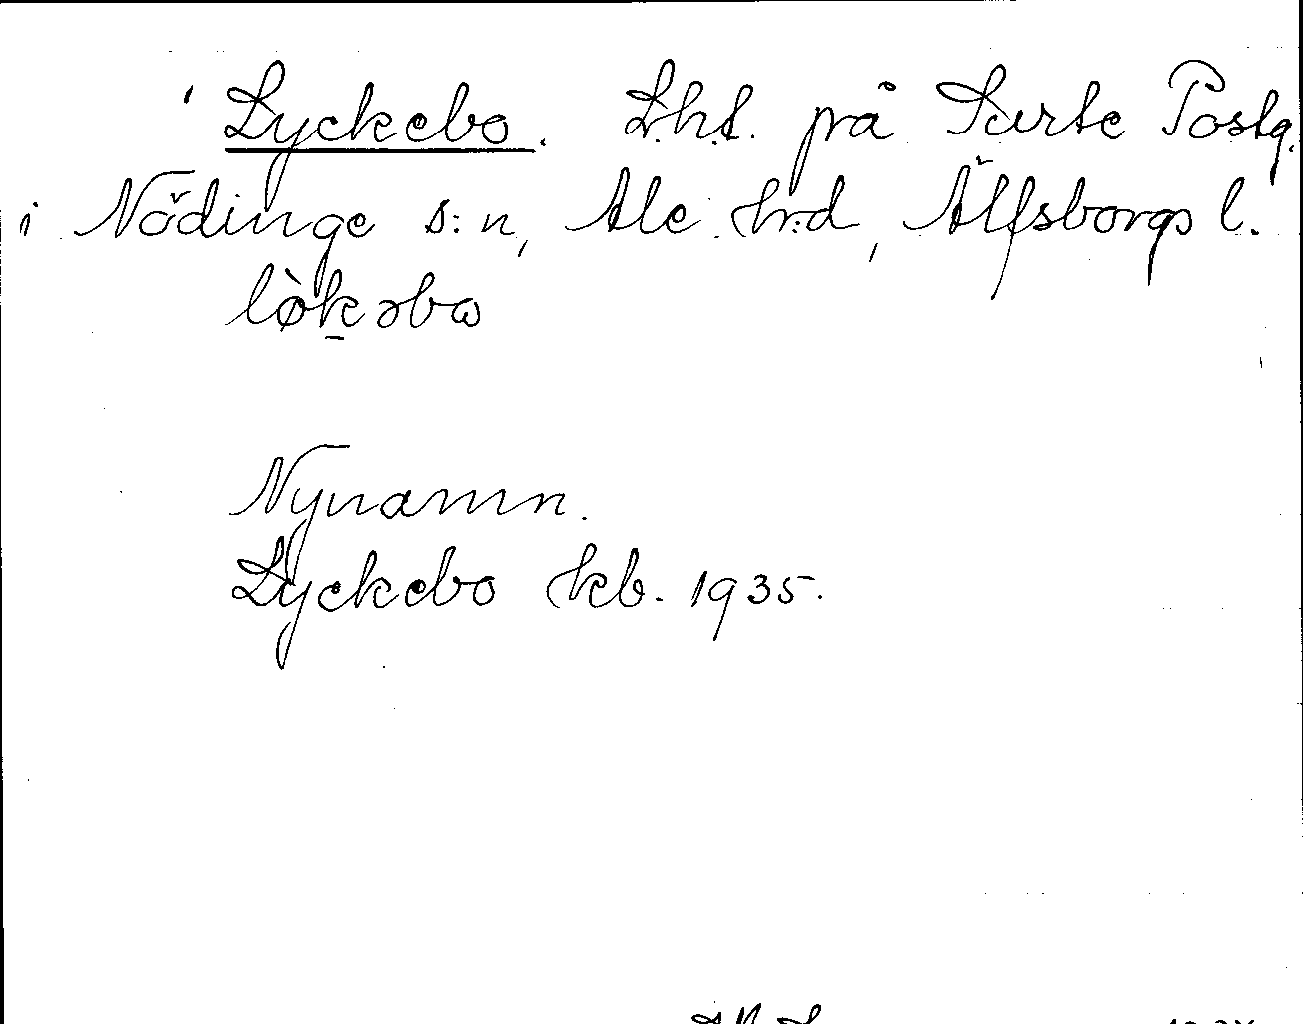 Lyckebo. L.h.t. på Surte Postg.
i Nödinge s:n, Ale hr:d, Älfsborgs l.
lòkəbω
Nynamn.
Lyckebo kb. 1935.